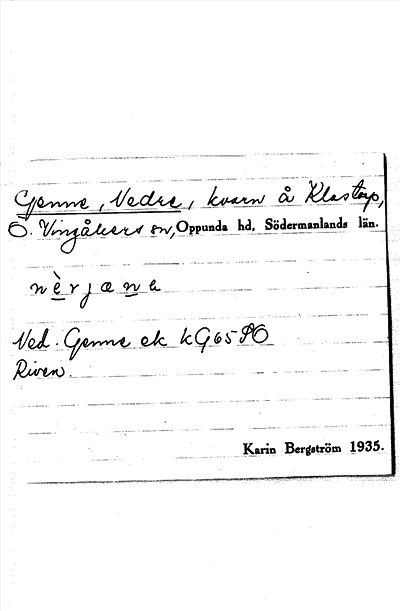 Genne, Nedre, kvarn å Klastorp,
Ö. Vingåkers sn, Oppunda hd, Södermanlands län.
nèrjæna
Ned. Genne ek kG65SO
Riven.
Karin Bergström 1935.